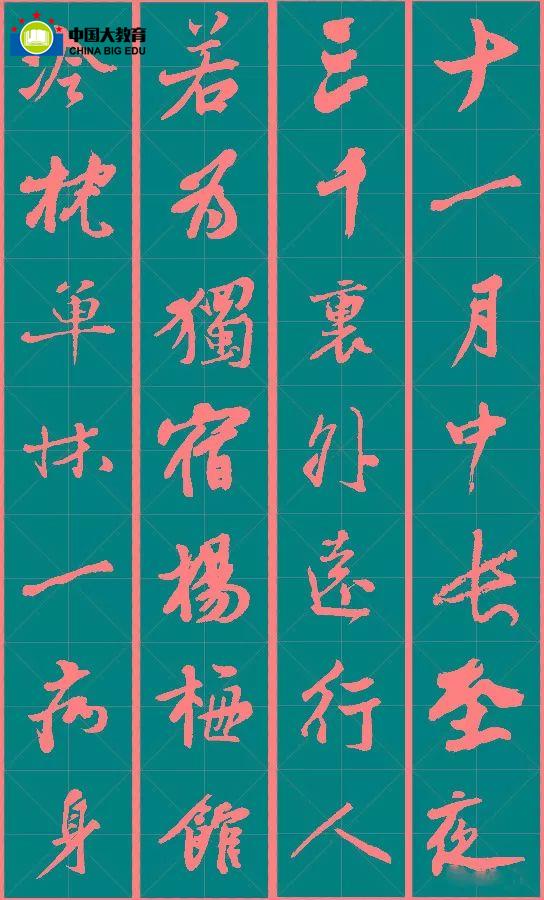 中国大教育
CHINA BIG EDU
十一月中长至夜
三千裏外遠行人
若为獨宿楊梅館
冷枕单牀一病身